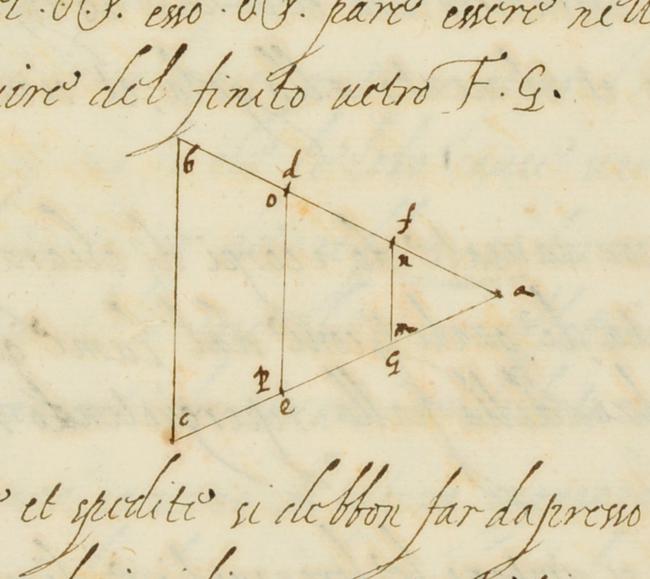 esso · O P. pare essere nell
uire del finito uetro F. G.
b
d
o
f
n
a
m
G
P
e
c
et spedite si debbon far dapresso